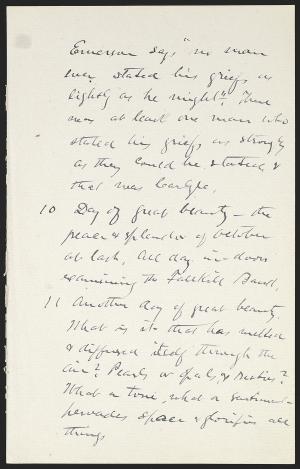 Emerson says "no man
ever stated his griefs as
lightly as he might". There
was at least one man who
stated his griefs as strongly
as they could be stated &
that was Carlyle.
10 Day of great beauty — the
peace & splendor of October
at last. All day in-doors
examining the Fallkill Bank.
11 Another day of great beauty.
What is it that has melted
& diffused itself through the
air? Pearls or opals, & rubies?
What a tonic, what a sentiment
pervades space & glorifies all
things